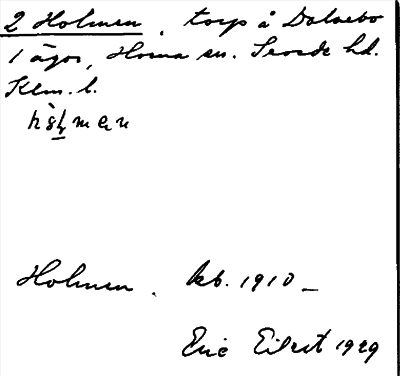 2 Holmen, torp å Dalsebo
1 ägor, Horna sn. Sevede hd.
Klm. l.
hòḷmen
Holmen. kb. 1910 –
Eric Eilert 1929